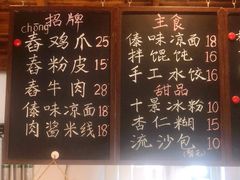 招牌
chōng
舂鸡爪 25
舂粉皮 15
舂牛肉 28
傣味凉面 18
肉酱米线 18
主食
傣味凉面 18
拌馄饨 16
手工水饺 16
甜品
十景冰粉 10
杏仁糊 15
流沙包 10